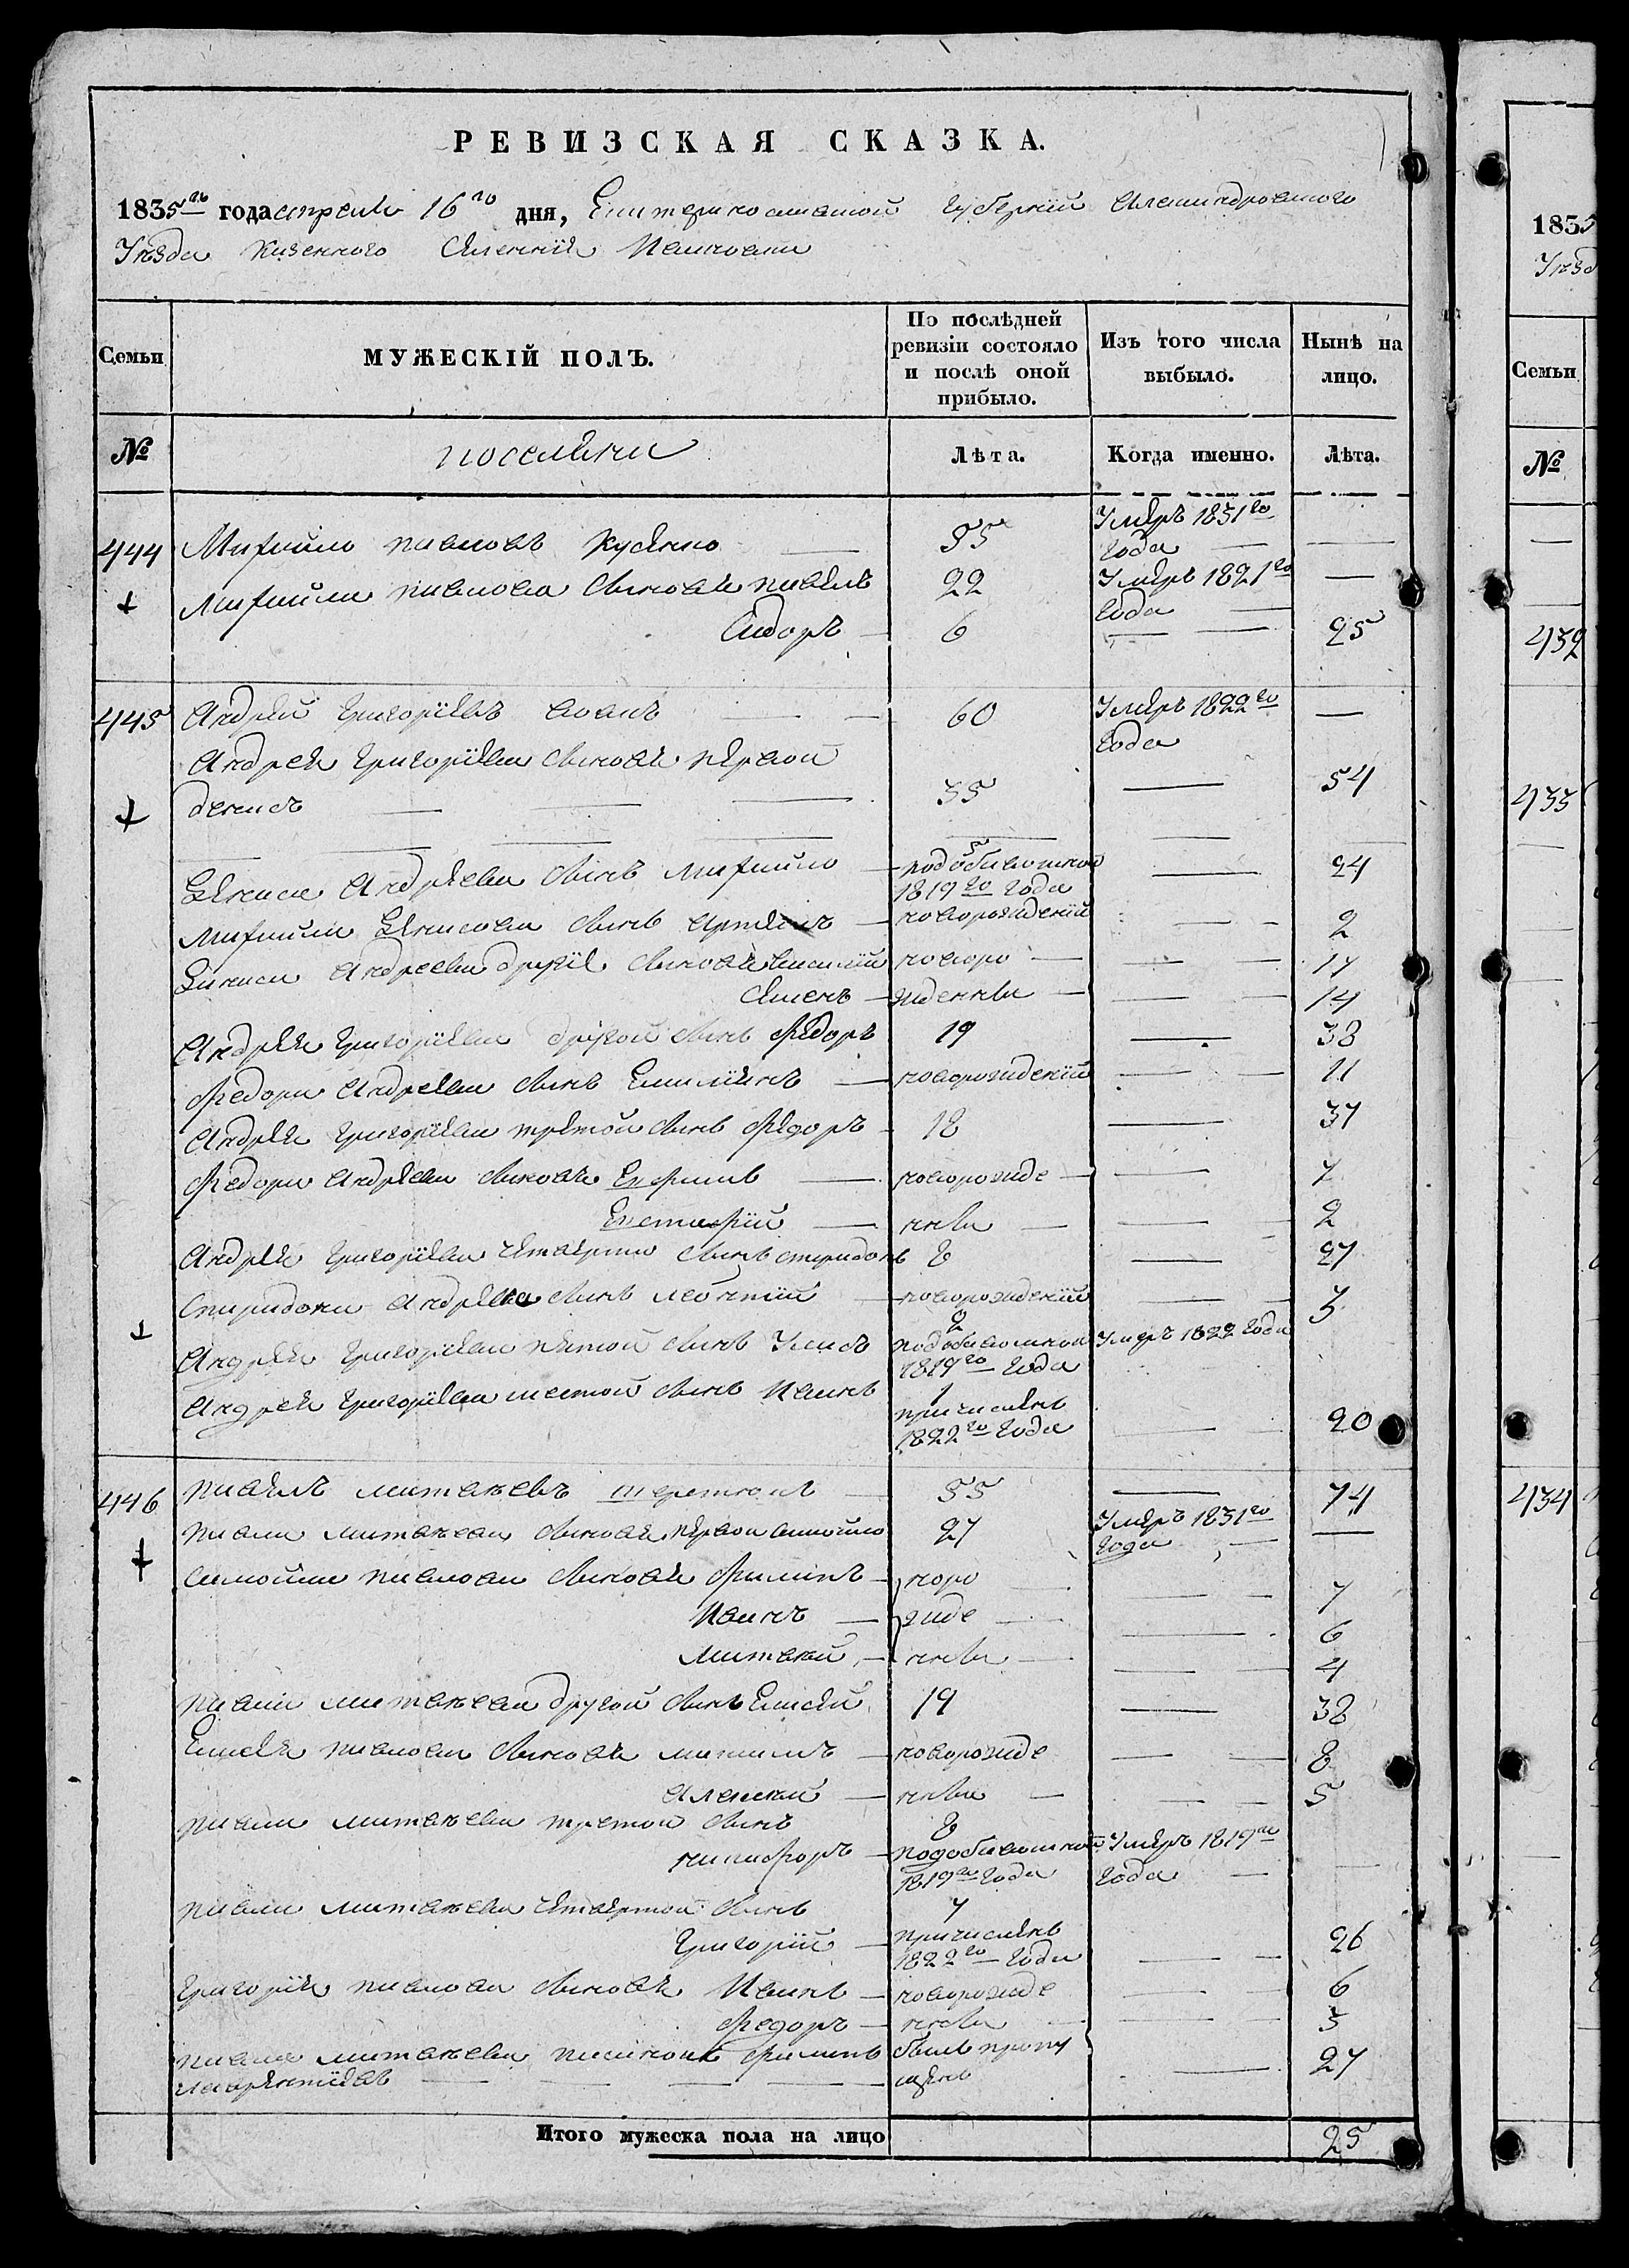 РЕВИЗСКАЯ СКАЗКА.
1835го года апреля 16го дня, Екатеринославской Губернии Александровского
Уезда Казенного Селения
Семьи
МУЖЕСКІЙ ПОЛЪ.
По послѣдней ревизіи состояло и послѣ оной прибыло.
Изъ того числа выбыло.
Нынѣ на лицо.
№
поселяни
Лѣта.
Когда именно.
Лѣта.
444 Михайло павловъ 55 Умеръ 1831го года —
Михайли павлова Синовя павелъ 22 Умеръ 1821го года —
Сидоръ — 6 — — 25
445 Андрей Григоріевъ — — 60 Умеръ 1822го года —
Андрея Григоріева Синовя первой
денисъ — — — 35 — 54
Дениса Андреева Синъ Михайло — 5 1819го года — 24
Михайли Денисова Синъ Артемъ — новорожденій — — 2
Дениса Андреева другіе Синовя Василий новоро — — — 17
Семенъ — жденни — — — 14
Андрея Григоріева другой Синъ Федоръ 19 — 38
Федора Андреева Синъ Емилиянъ — новорожденій — — 11
Андрея Григоріева третой Синъ Федоръ — 18 — 37
Федора Андреева Синовя — новорожде — — 7
Евстафій — нни — — — 2
Андрея Григоріева четверти Синъ спиридонъ 8 — 27
Спиридона Андреева Синъ леонтій — новорожденій — — 3
Андрея Григоріева пятой Синъ Уласъ 2 1819го года Умеръ 1822 года
Андрея Григоріева шестой Синъ Иванъ 1 причисленъ 1822го года — — 20
446 павелъ матвѣевъ — 55 — 74
павла матвѣева Синовя первой самойло 27 Умеръ 1831го года — —
самойли павлова Синовя филипъ — норо — — — 7
Иванъ — жде — — — 6
матвей — нни — — — 4
павла матвѣева другой Синъ Елисей 19 — 38
Елисея павлова Синовя максимъ — новорожде — — 8
Алексей — нни — — — 5
павла матвѣева третой Синъ
никифоръ — 8 1819го года Умеръ 1819го года — —
павла матвѣева четвертой Синъ
Григорій — 7 причисленъ 1822го года — — 26
Григорія павлова Синовя Иванъ — новорожде — — 6
Федоръ — нни — — — 3
павла матвѣева пасинокъ филипъ билъ пропу — 27
лаврентіевъ — — — — щенъ
Итого мужеска пола на лицо 25
1835
Уезд
Семьи
№
432
433
434